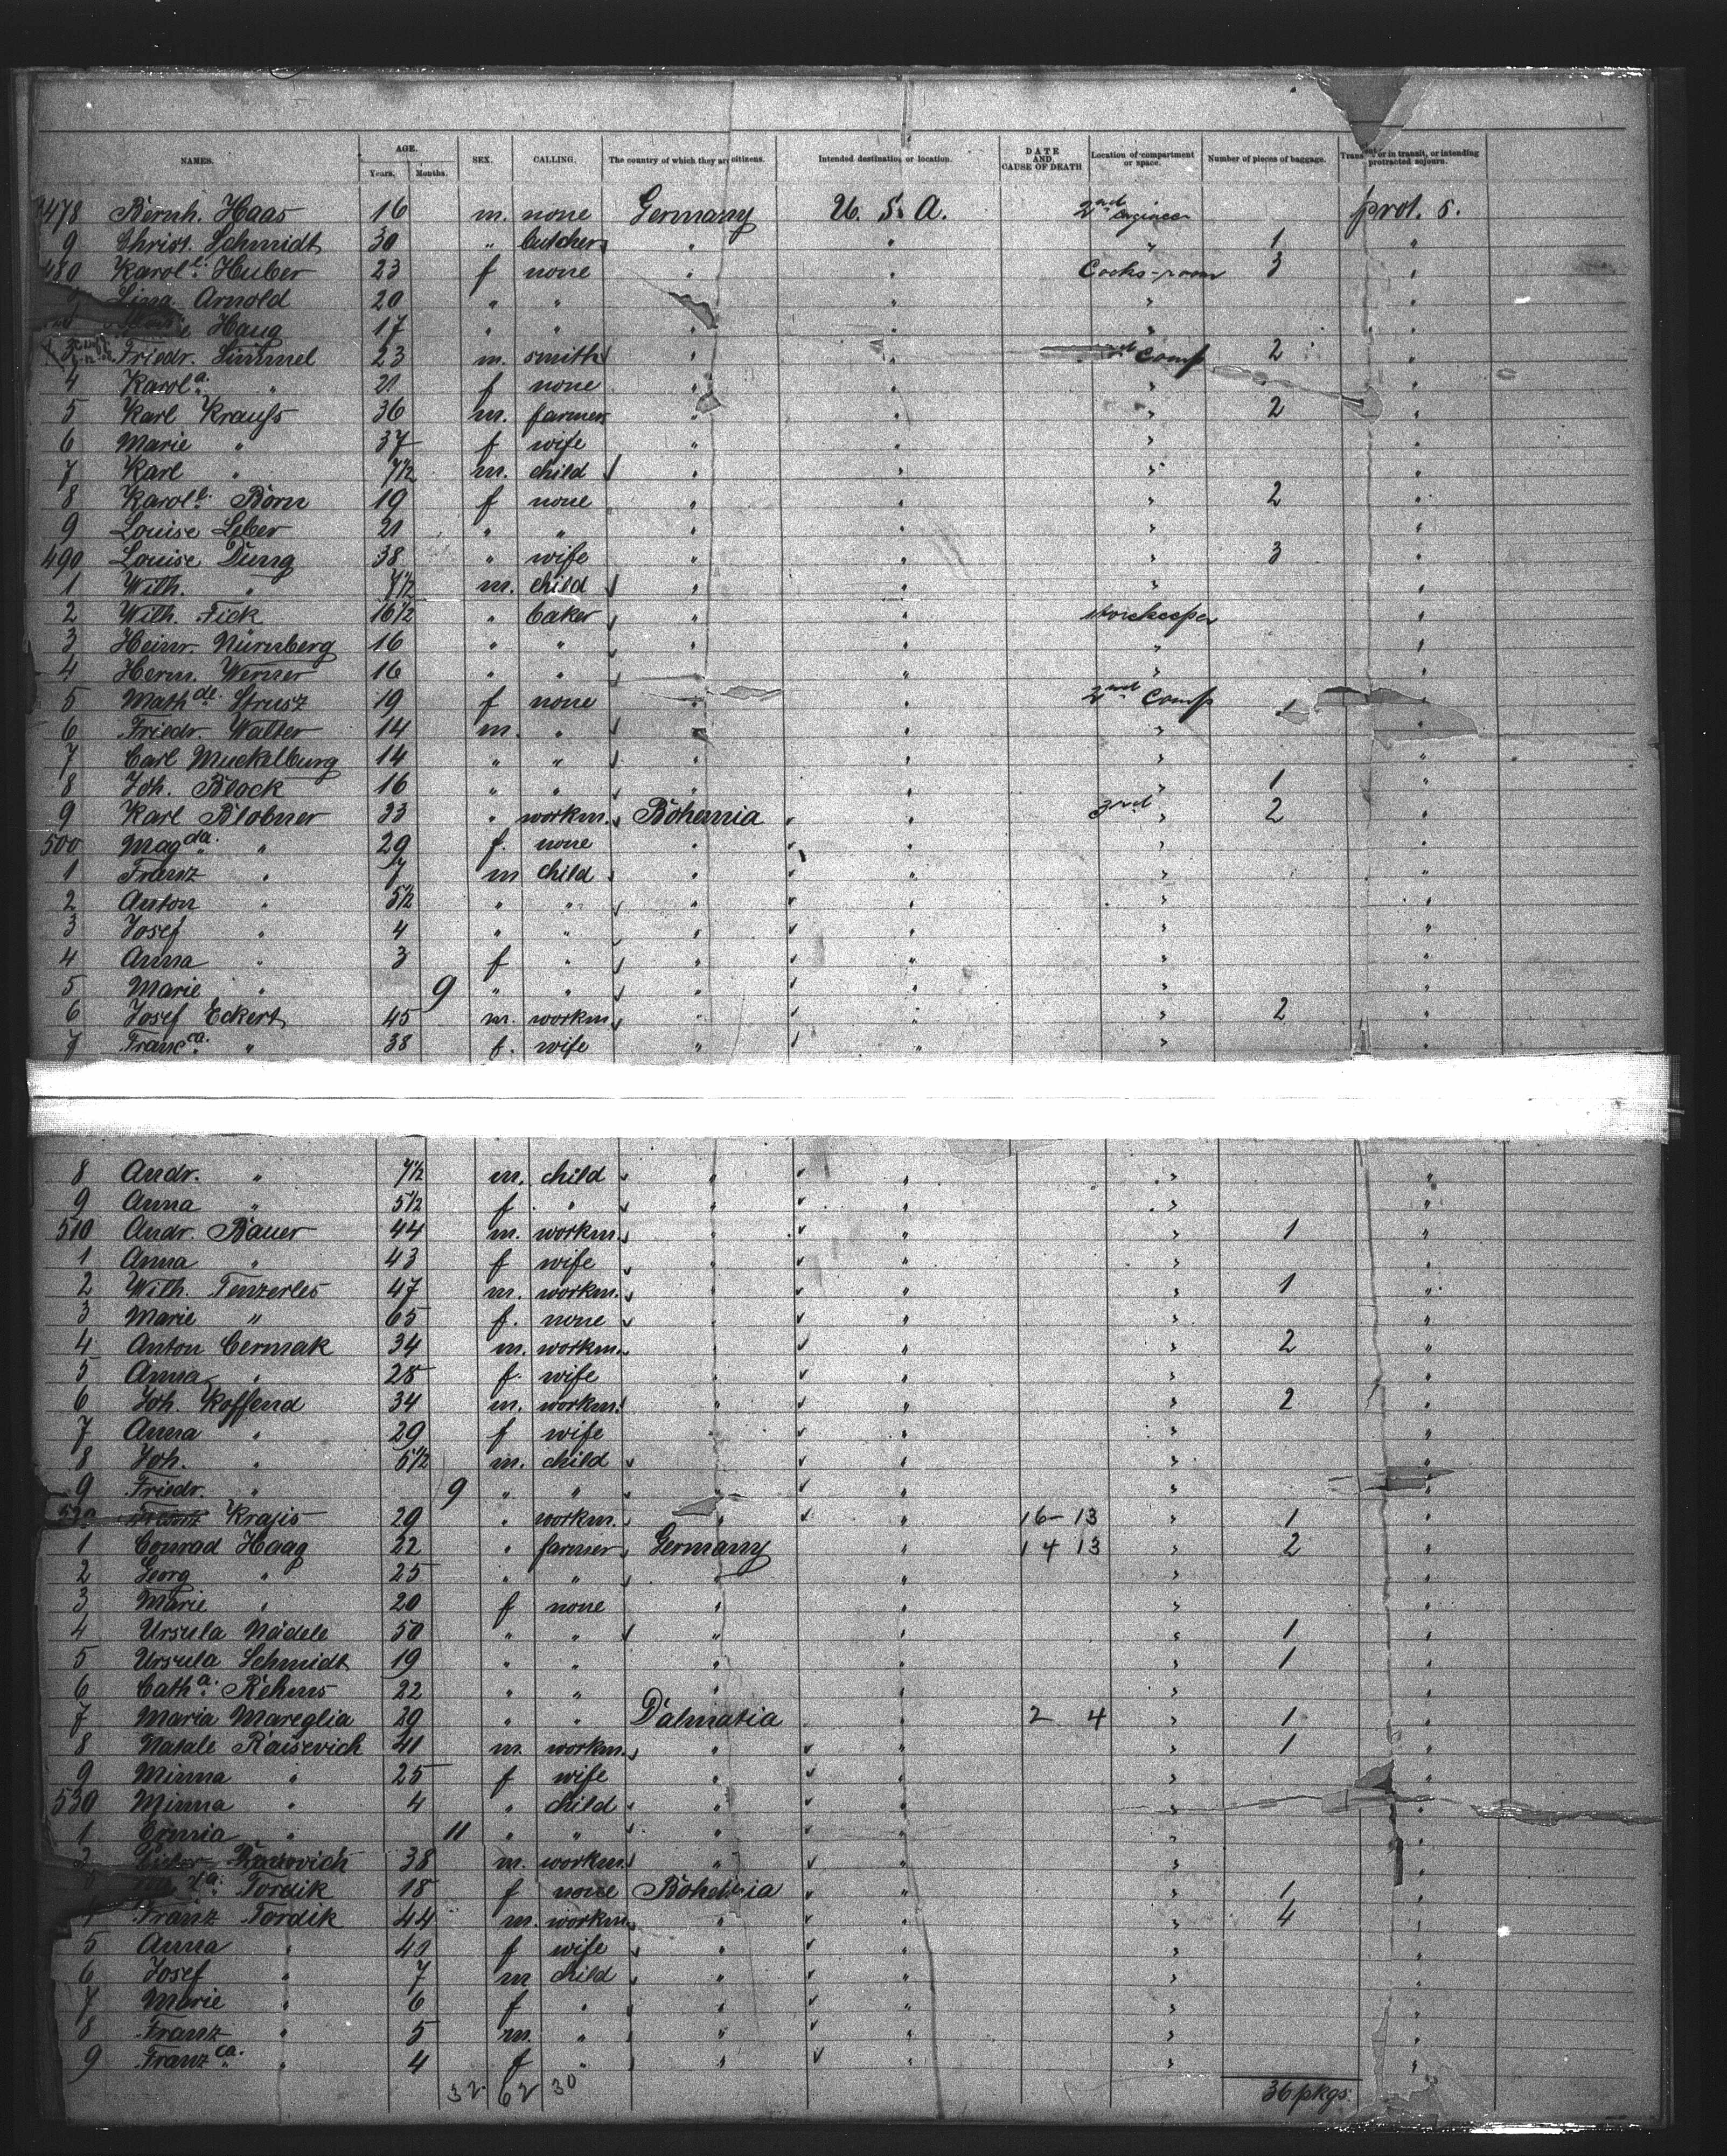 NAMES. AGE. Years. Months. SEX. CALLING. The country of which they are citizens. Intended destination or location. DATE AND CAUSE OF DEATH Location of compartment or space. Number of pieces of baggage. or in transit, or intending protracted sojourn.
478 Bernh. Haas 16 m. none Germany U. S. A. 2nd engineer prot. s.
9 Christ. Schmidt 30 " butcher " " " 1 "
480 Karole. Huber 23 f none " " Cooks-room 3 "
Lina Arnold 20 " " " " " "
Haug 17 " " " " "
3 Friedr. Simmel 23 m. smith " " comp 2 "
4 Karola. " 21 f none " " " "
5 Karl Krauß 36 m. farmer " " " 2 "
6 Marie " 37 f wife " " " "
7 Karl " 7½ m. child " " " "
8 Karole. Born 19 f none " " " 2 "
9 Louise Leber 21 " " " " " "
490 Louise Dung 38 " wife " " " 3 "
1 Wilh. " 7½ m. child " " " "
2 Wilh. Fick 16½ " baker " " storekeeper "
3 Heinr. Nürnberg 16 " " " " " "
4 Herm. Werner 16 " " " " "
5 Mathde. Strusz 19 f none " " 2nd Comp 1 "
6 Friedr. Walter 14 m. " " " " "
7 Carl Muckelburg 14 " " " " " "
8 Joh. Block 16 " " " " " 1 "
9 Karl Blobner 33 " workm. Bohemia " 3rd " 2 "
500 Magda. " 29 f. none " " " "
1 Franz " 7 m child " " " "
2 Anton " 5½ " " " " " "
3 Josef " 4 " " " " " "
4 Anna " 3 f " " " " "
5 Marie " 9 " " " " " "
6 Josef Eckert 45 m. workm. " " " 2 "
7 Franca. " 38 f. wife " " " "
8 Andr. " 7½ m. child " " " "
9 Anna " 5½ f " " " " "
510 Andr. Bauer 44 m. workm. " " " 1 "
1 Anna " 43 f wife " " " "
2 Wilh. Tenzerles 47 m. workm. " " " 1 "
3 Marie " 65 f. none " " " "
4 Anton Cermak 34 m. workm. " " " 2 "
5 Anna " 28 f. wife " " " "
6 Joh. Koffend 34 m. workm. " " " 2 "
7 Anna " 29 f wife " " " "
8 Joh. " 5½ m. child " " " "
9 Friedr. " 9 " " " " " "
520 Krajis 29 " workm. " " 16-13 " 1 "
1 Conrad Haag 22 " farmer Germany " 14 13 " 2 "
2 Georg " 25 " " " " " "
3 Marie " 20 f none " " " "
4 Ursula Nädele 50 " " " " " 1 "
5 Ursula Schmidt 19 " " " " " 1 "
6 Catha. Rehms 22 " " " " " "
7 Maria Mareglia 29 " " Dalmatia " 2 4 " 1 "
8 Natale Raisevich 41 m. workm. " " " 1 "
9 Minna " 25 f wife " " " "
530 Minna " 4 " child " " " "
1 " 11 " " " " "
2 38 m. workm. " " " "
Tordik 18 f none Bohemia " " 1 "
4 Franz Tordik 44 m. workm. " " " 4 "
5 Anna " 41 f wife " " " "
6 Josef " 7 m child " " " "
7 Marie " 6 f " " " " "
8 Franz " 5 m. " " " " "
9 Franzca. " 4 f " " " " "
32 62 30 36 pkgs.